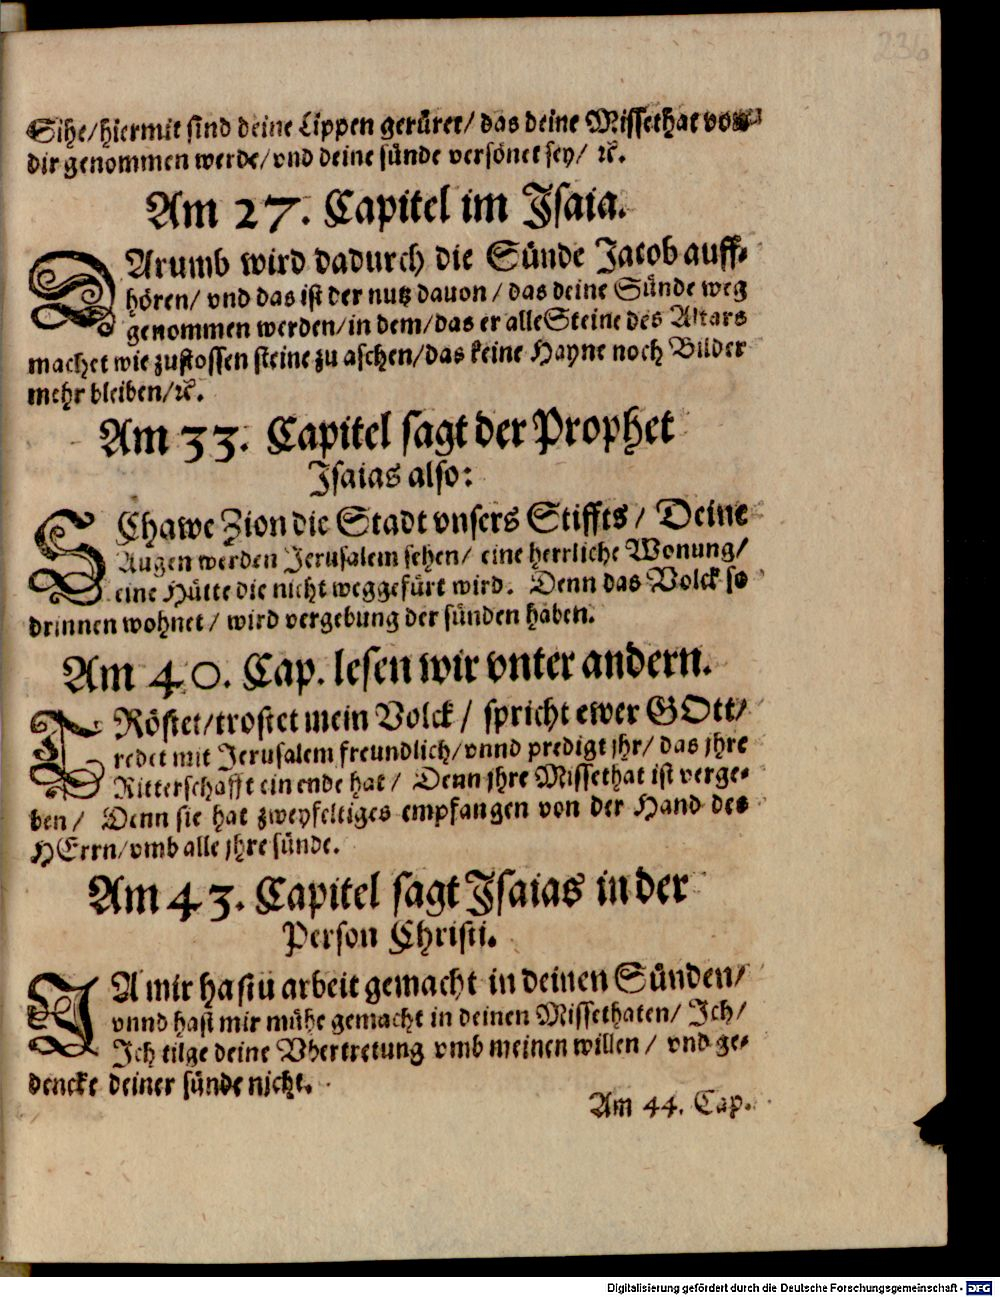 236
Sihe/hiermit sind deine Lippen gerüret/ das deine Missethat von
dir genommen werde/vnd deine sünde versönet sey/ ꝛc.
Am 27. Capitel im Isaia.
DArumb wird dadurch die Sünde Jacob auff-
hören/ vnd das ist der nutz dauon/ das deine Sünde weg
genommen werden/in dem/das er alle Steine des Altars
machet wie zustossen steine zu aschen/das keine Hayne noch Bilder
mehr bleiben/ꝛc.
Am 33. Capitel sagt der Prophet
Isaias also:
SChawe Zion die Stadt vnsers Stiffts/ Deine
Augen werden Jerusalem sehen/ eine herrliche Wonung/
eine Hütte die nicht weggefürt wird. Denn das Volck so
drinnen wohnet/ wird vergebung der sünden haben.
Am 40. Cap. lesen wir vnter andern.
TRöstet/tröstet mein Volck/ spricht ewer GOtt/
redet mit Jerusalem freundlich/vnnd predigt jhr/ das jhre
Ritterschafft ein ende hat/ Denn jhre Missethat ist verge-
ben/ Denn sie hat zweyfeltiges empfangen von der Hand des
HErrn/vmb alle jhre sünde.
Am 43. Capitel sagt Isaias in der
Person Christi.
JA mir hastu arbeit gemacht in deinen Sünden/
vnnd hast mir mühe gemacht in deinen Missethaten/ Ich/
Ich tilge deine Vbertretung vmb meinen willen/ vnd ge-
dencke deiner sünde nicht.
Am 44. Cap.
Digitalisierung gefördert durch die Deutsche Forschungsgemeinschaft - DFG